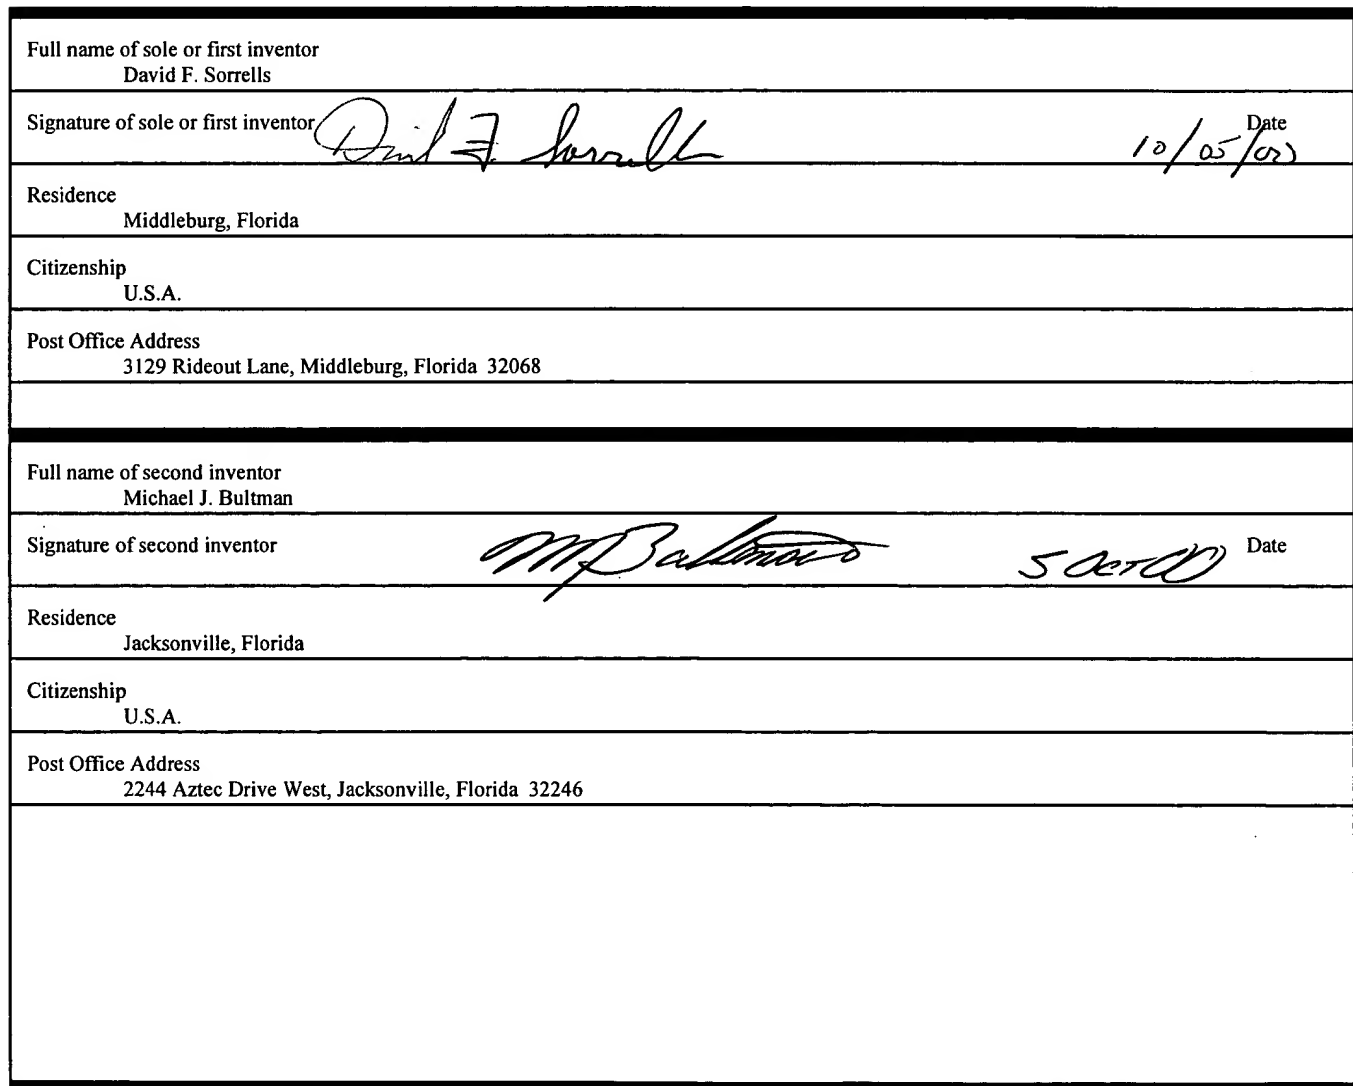 Full name of sole or first inventor
David F. Sorrells
Signature of sole or first inventor David F. Sorrells 10/05/00 Date
Residence
Middleburg, Florida
Citizenship
U.S.A.
Post Office Address
3129 Rideout Lane, Middleburg, Florida 32068
Full name of second inventor
Michael J. Bultman
Signature of second inventor MJBultman 5 OCT 00 Date
Residence
Jacksonville, Florida
Citizenship
U.S.A.
Post Office Address
2244 Aztec Drive West, Jacksonville, Florida 32246